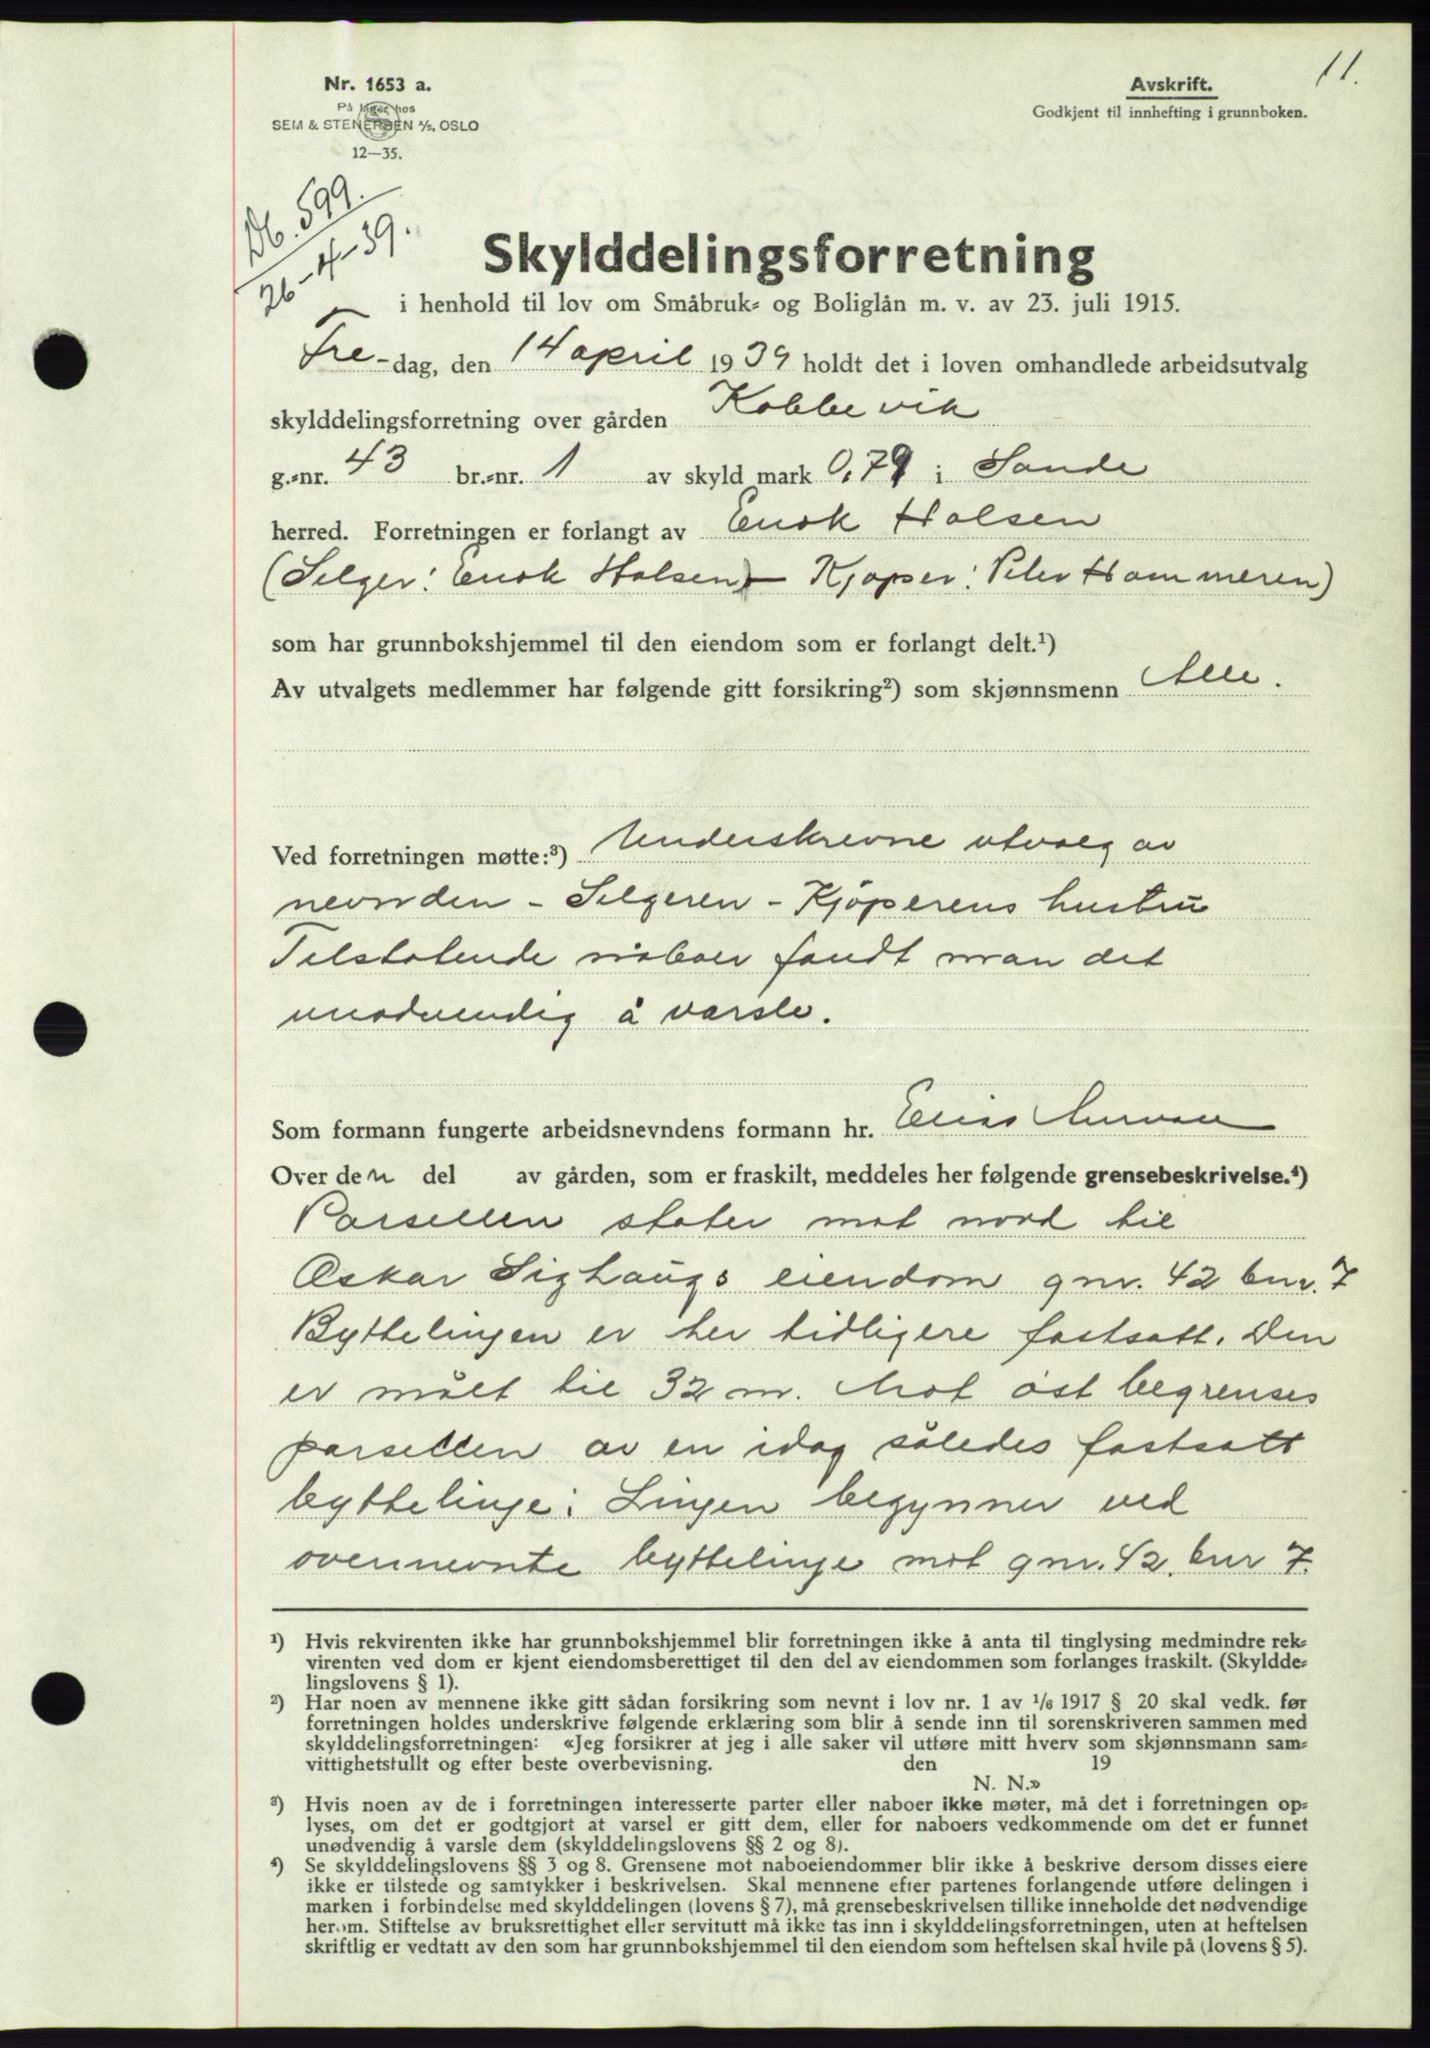 11.
Nr. 1653 a.
På lager hos
SEM & STENERSEN A/S, OSLO
12—35.
Avskrift.
Godkjent til innhefting i grunnboken.
Db. 599.
26-4-39.
Skylddelingsforretning
i henhold til lov om Småbruk- og Boliglån m. v. av 23. juli 1915.
Fre-dag, den 14 april 1939 holdt det i loven omhandlede arbeidsutvalg
skylddelingsforretning over gården Kobbevik
g.-nr. 43 br.-nr. 1 av skyld mark 0,79 i Sande
herred. Forretningen er forlangt av Enok Halsen
(Selger: Enok Halsen - Kjøper: Peter Hammeren)
som har grunnbokshjemmel til den eiendom som er forlangt delt.¹)
Av utvalgets medlemmer har følgende gitt forsikring²) som skjønnsmenn Alle.
Ved forretningen møtte:³) Underskrevne utvalg av
nevnden - Selgeren - Kjöperens hustru
Tilstøtende naboer fandt man det
unødvendig å varsle.
Som formann fungerte arbeidsnevndens formann hr. Elias
Over den del av gården, som er fraskilt, meddeles her følgende grensebeskrivelse.⁴)
Parsellen støter mot nord til
Oskar Sighaugs eiendom gnr. 42 bnr. 7
Byttelinjen er her tidligere fastsatt. Den
er målt til 32 m. Mot øst begrenses
parsellen av en idag således fastsatt
byttelinje: Linjen begynner ved
ovennevnte byttelinje mot gnr. 42. bnr 7.
¹) Hvis rekvirenten ikke har grunnbokshjemmel blir forretningen ikke å anta til tinglysing medmindre rek-
virenten ved dom er kjent eiendomsberettiget til den del av eiendommen som forlanges fraskilt. (Skyldde-
lingslovens § 1).
²) Har noen av mennene ikke gitt sådan forsikring som nevnt i lov nr. 1 av 1/6 1917 § 20 skal vedk. før
forretningen holdes underskrive følgende erklæring som blir å sende inn til sorenskriveren sammen med
skylddelingsforretningen: «Jeg forsikrer at jeg i alle saker vil utføre mitt hverv som skjønnsmann sam-
vittighetsfullt og efter beste overbevisning. den 19
N. N.»
³) Hvis noen av de i forretningen interesserte parter eller naboer ikke møter, må det i forretningen op-
lyses, om det er godtgjort at varsel er gitt dem, eller for naboers vedkommende om det er funnet
unødvendig å varsle dem (skylddelingslovens §§ 2 og 8).
⁴) Se skylddelingslovens §§ 3 og 8. Grensene mot naboeiendommer blir ikke å beskrive dersom disses eiere
ikke er tilstede og samtykker i beskrivelsen. Skal mennene efter partenes forlangende utføre delingen i
marken i forbindelse med skylddelingen (lovens § 7), må grensebeskrivelsen tillike inneholde det nødvendige
herom. Stiftelse av bruksrettighet eller servitutt må ikke tas inn i skylddelingsforretningen, uten at heftelsen
skriftlig er vedtatt av den som har grunnbokshjemmel til den eiendom som heftelsen skal hvile på (lovens § 5).